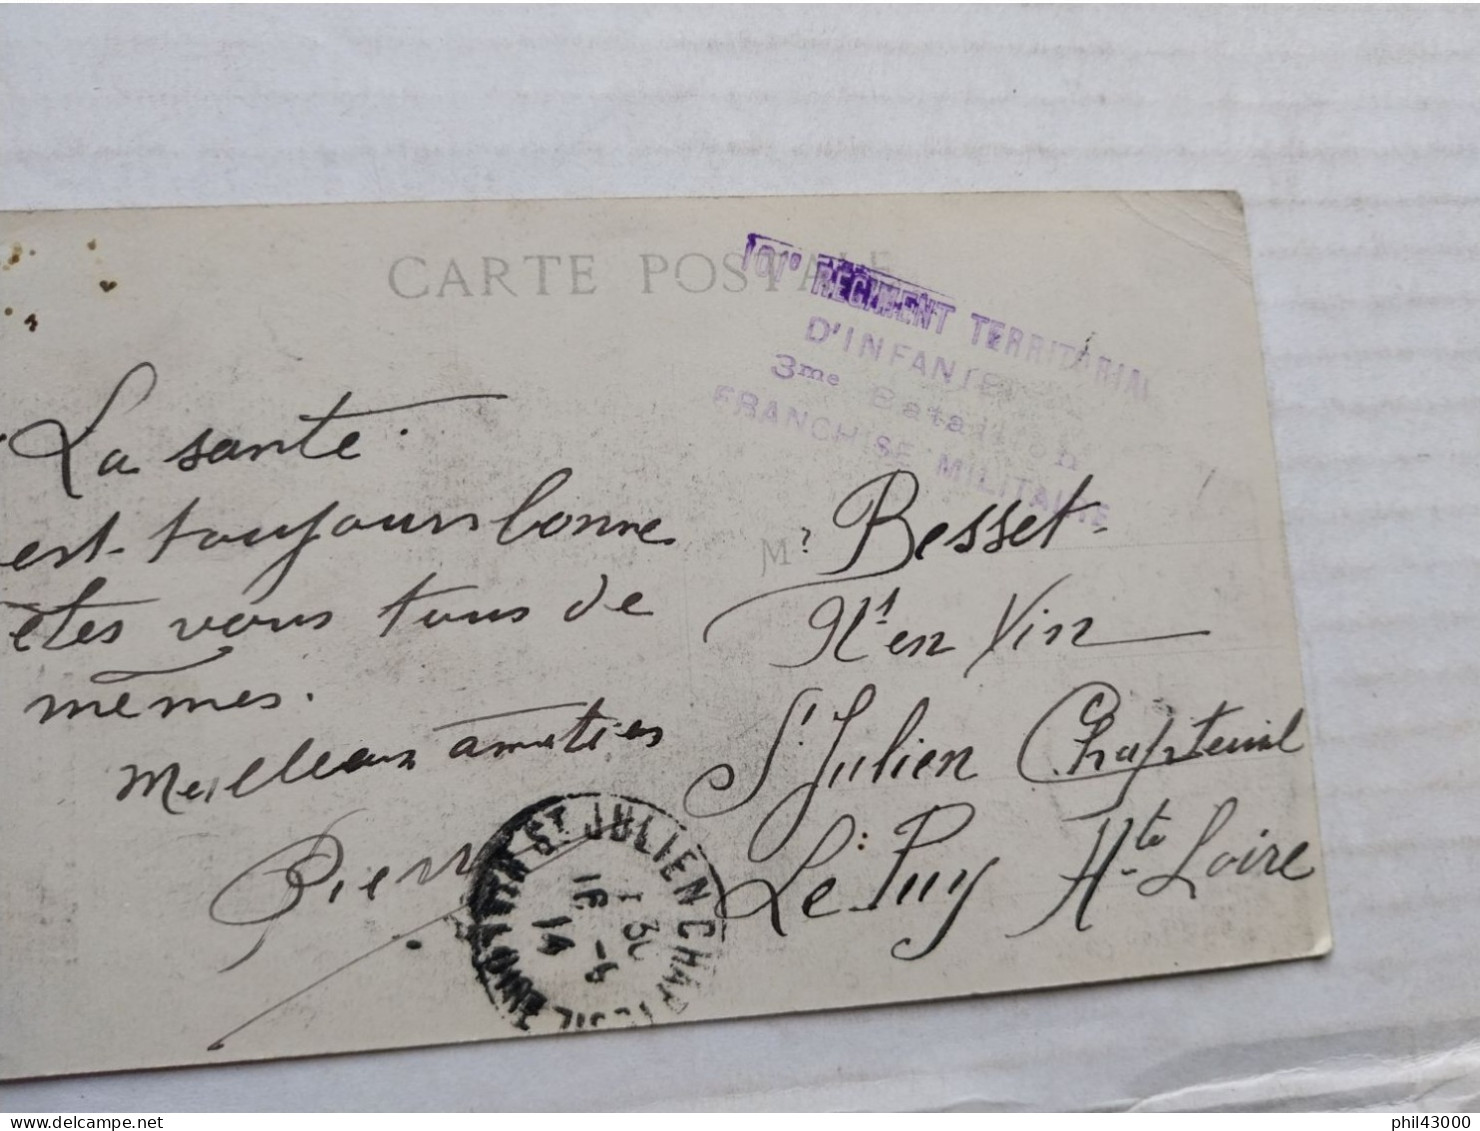 CARTE POSTALE
101e REGIMENT TERRITORIAL
D'INFANTERIE
3me Bataillon
FRANCHISE MILITAIRE
La santé
est toujours bonne
êtes vous tous de
mêmes.
Meilleurs amitiés
Pierre
Mr Besset
Nt en Vin
St Julien Chapteuil
Le Puy Hte Loire
ST JULIEN CHAPTEUIL
1 30
16 - 9
14
HTE LOIRE
phil43000